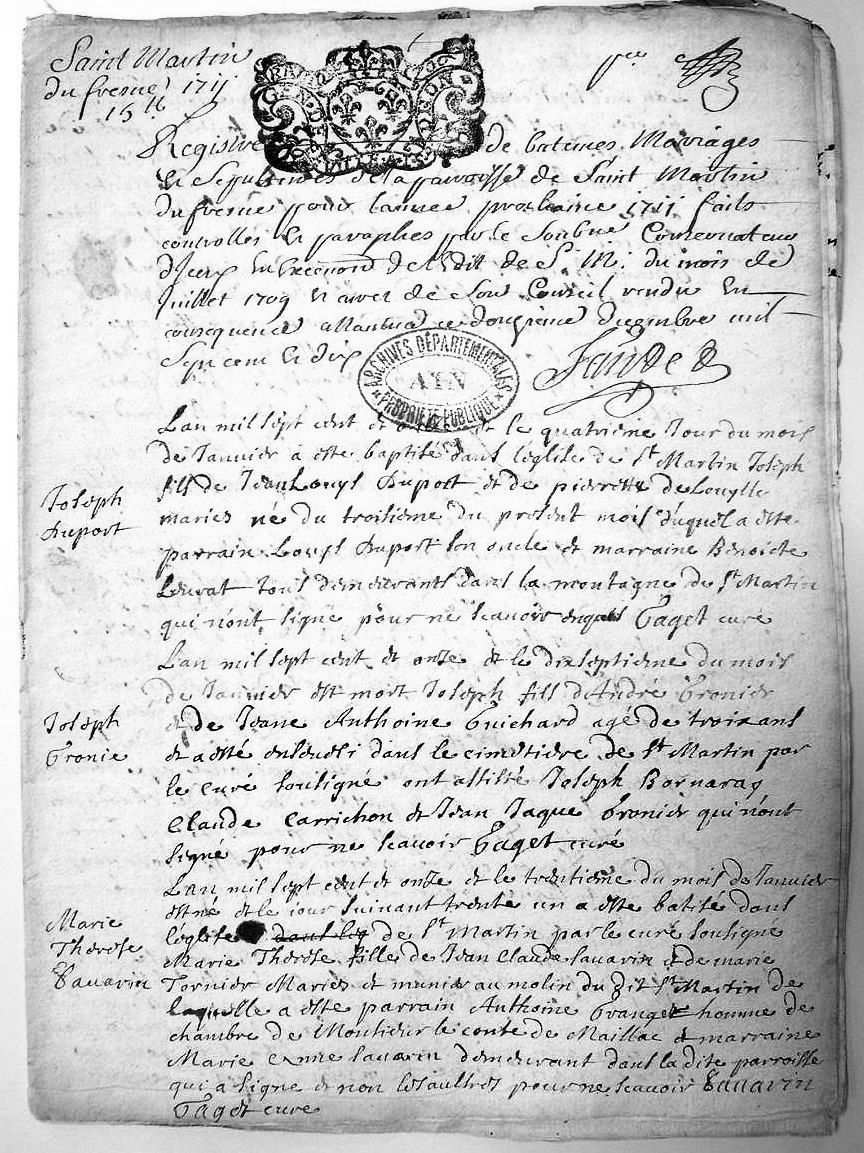 Saint Martin
du fresne 1711
Registre de batemes Mariages
et Sepultures de la paroisse de Saint Martin
du fresne pour lannee prochaine 1711 faits
controlles et paraphes par le Conservateur
de Edit de S. M. du mois de
Juillet 1709 et arret de Son Conseil rendu en
consequence a Nantua ce douzieme decembre mil
Sept cent et dix
ARCHIVES DÉPARTEMENTALES
AIN
PROPRIÉTÉ PUBLIQUE
Lan mil sept cent et le quatrieme Jour du mois
de Janvier à esté baptisé dans leglise de St Martin Joseph
fils de Jean Louys Duport et de pierrette de Louylle
Joseph
Duport
mariés né du troisieme du present mois duquel a esté
parrain Louys Duport son oncle et marraine Benoicte
Louvat tous demeurants dans la montagne de St Martin
qui nont signé pour ne scavoir enquis Taget curé
Lan mil sept cent et onze et le dixseptieme du mois
de Janvier est mort Joseph fils dAndré Gronier
Joseph
Gronie
et de Jeane Anthoine Guichard agé de troix ans
et a esté enseveli dans le cimetiere de St Martin par
le curé soussigné ont assisté Joseph
Claude Carrichon et Jean Jaque Gronier qui nont
signé pour ne scavoir Taget curé
Lan mil sept cent et onze et le trentieme du mois de Janvier
est né et le jour suivant trente un a esté batisé dans
Marie
Therese
Savarin
leglise dans leg de St Martin par le curé soussigné
Marie Therese fille de Jean Claude Savarin et de marie
Tornier Mariés et munier au molin du dit St Martin de
laquelle a esté parrain Anthoine Grange homme de
chambre de Monsieur le conte de Maillac et marraine
Marie Anne Savarin demeurant dans la dite parroisse
qui a signé et non les aultres pour ne scavoir Savarin
Taget curé